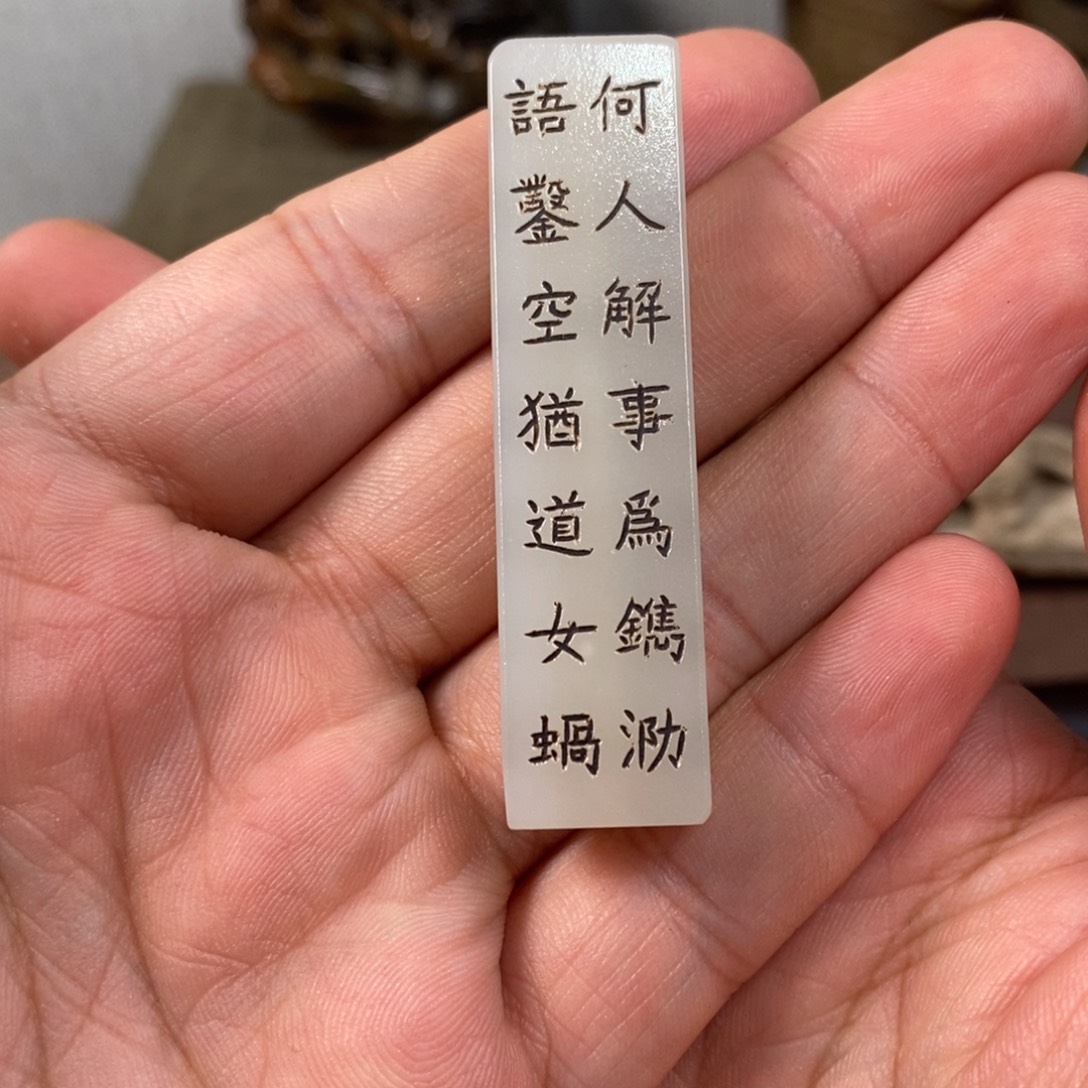 何人解事為鐫泐
語鑿空猶道女蝸